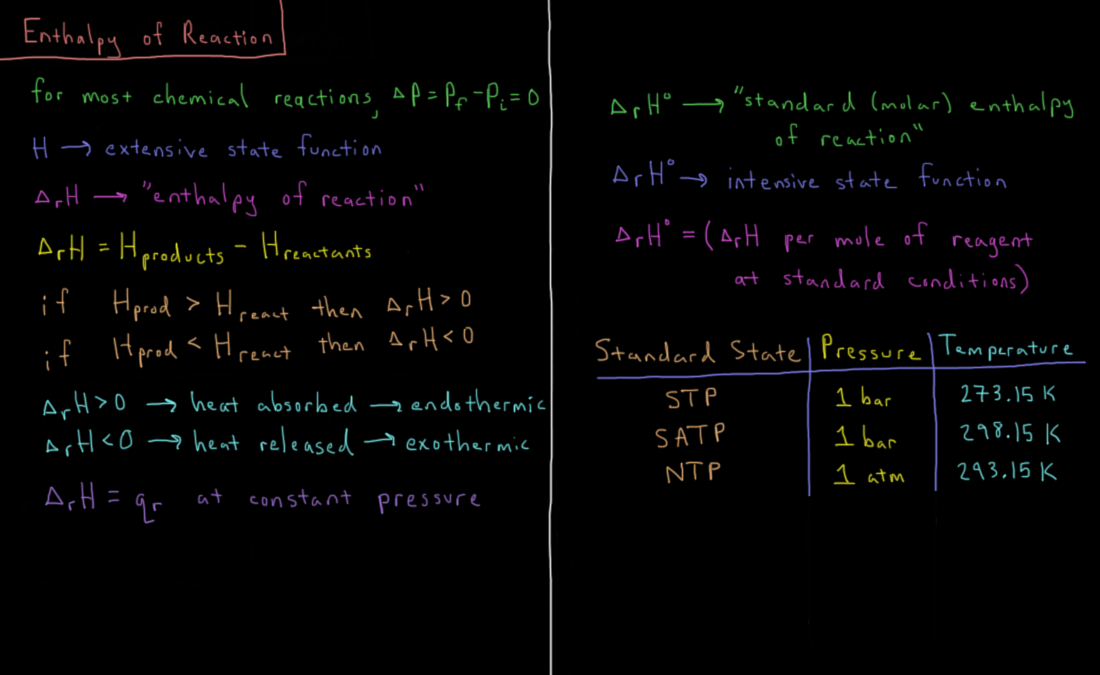 Enthalpy of Reaction
for most chemical reactions, ΔP = P_f - P_i = 0
H → extensive state function
Δ_rH → "enthalpy of reaction"
Δ_rH = H_products - H_reactants
if H_prod > H_react then Δ_rH > 0
if H_prod < H_react then Δ_rH < 0
Δ_rH > 0 → heat absorbed → endothermic
Δ_rH < 0 → heat released → exothermic
Δ_rH = q_r at constant pressure
Δ_rH° → "standard (molar) enthalpy
of reaction"
Δ_rH° → intensive state function
Δ_rH° = (Δ_rH per mole of reagent
at standard conditions)
Standard State Pressure Temperature
STP 1 bar 273.15 K
SATP 1 bar 298.15 K
NTP 1 atm 293.15 K